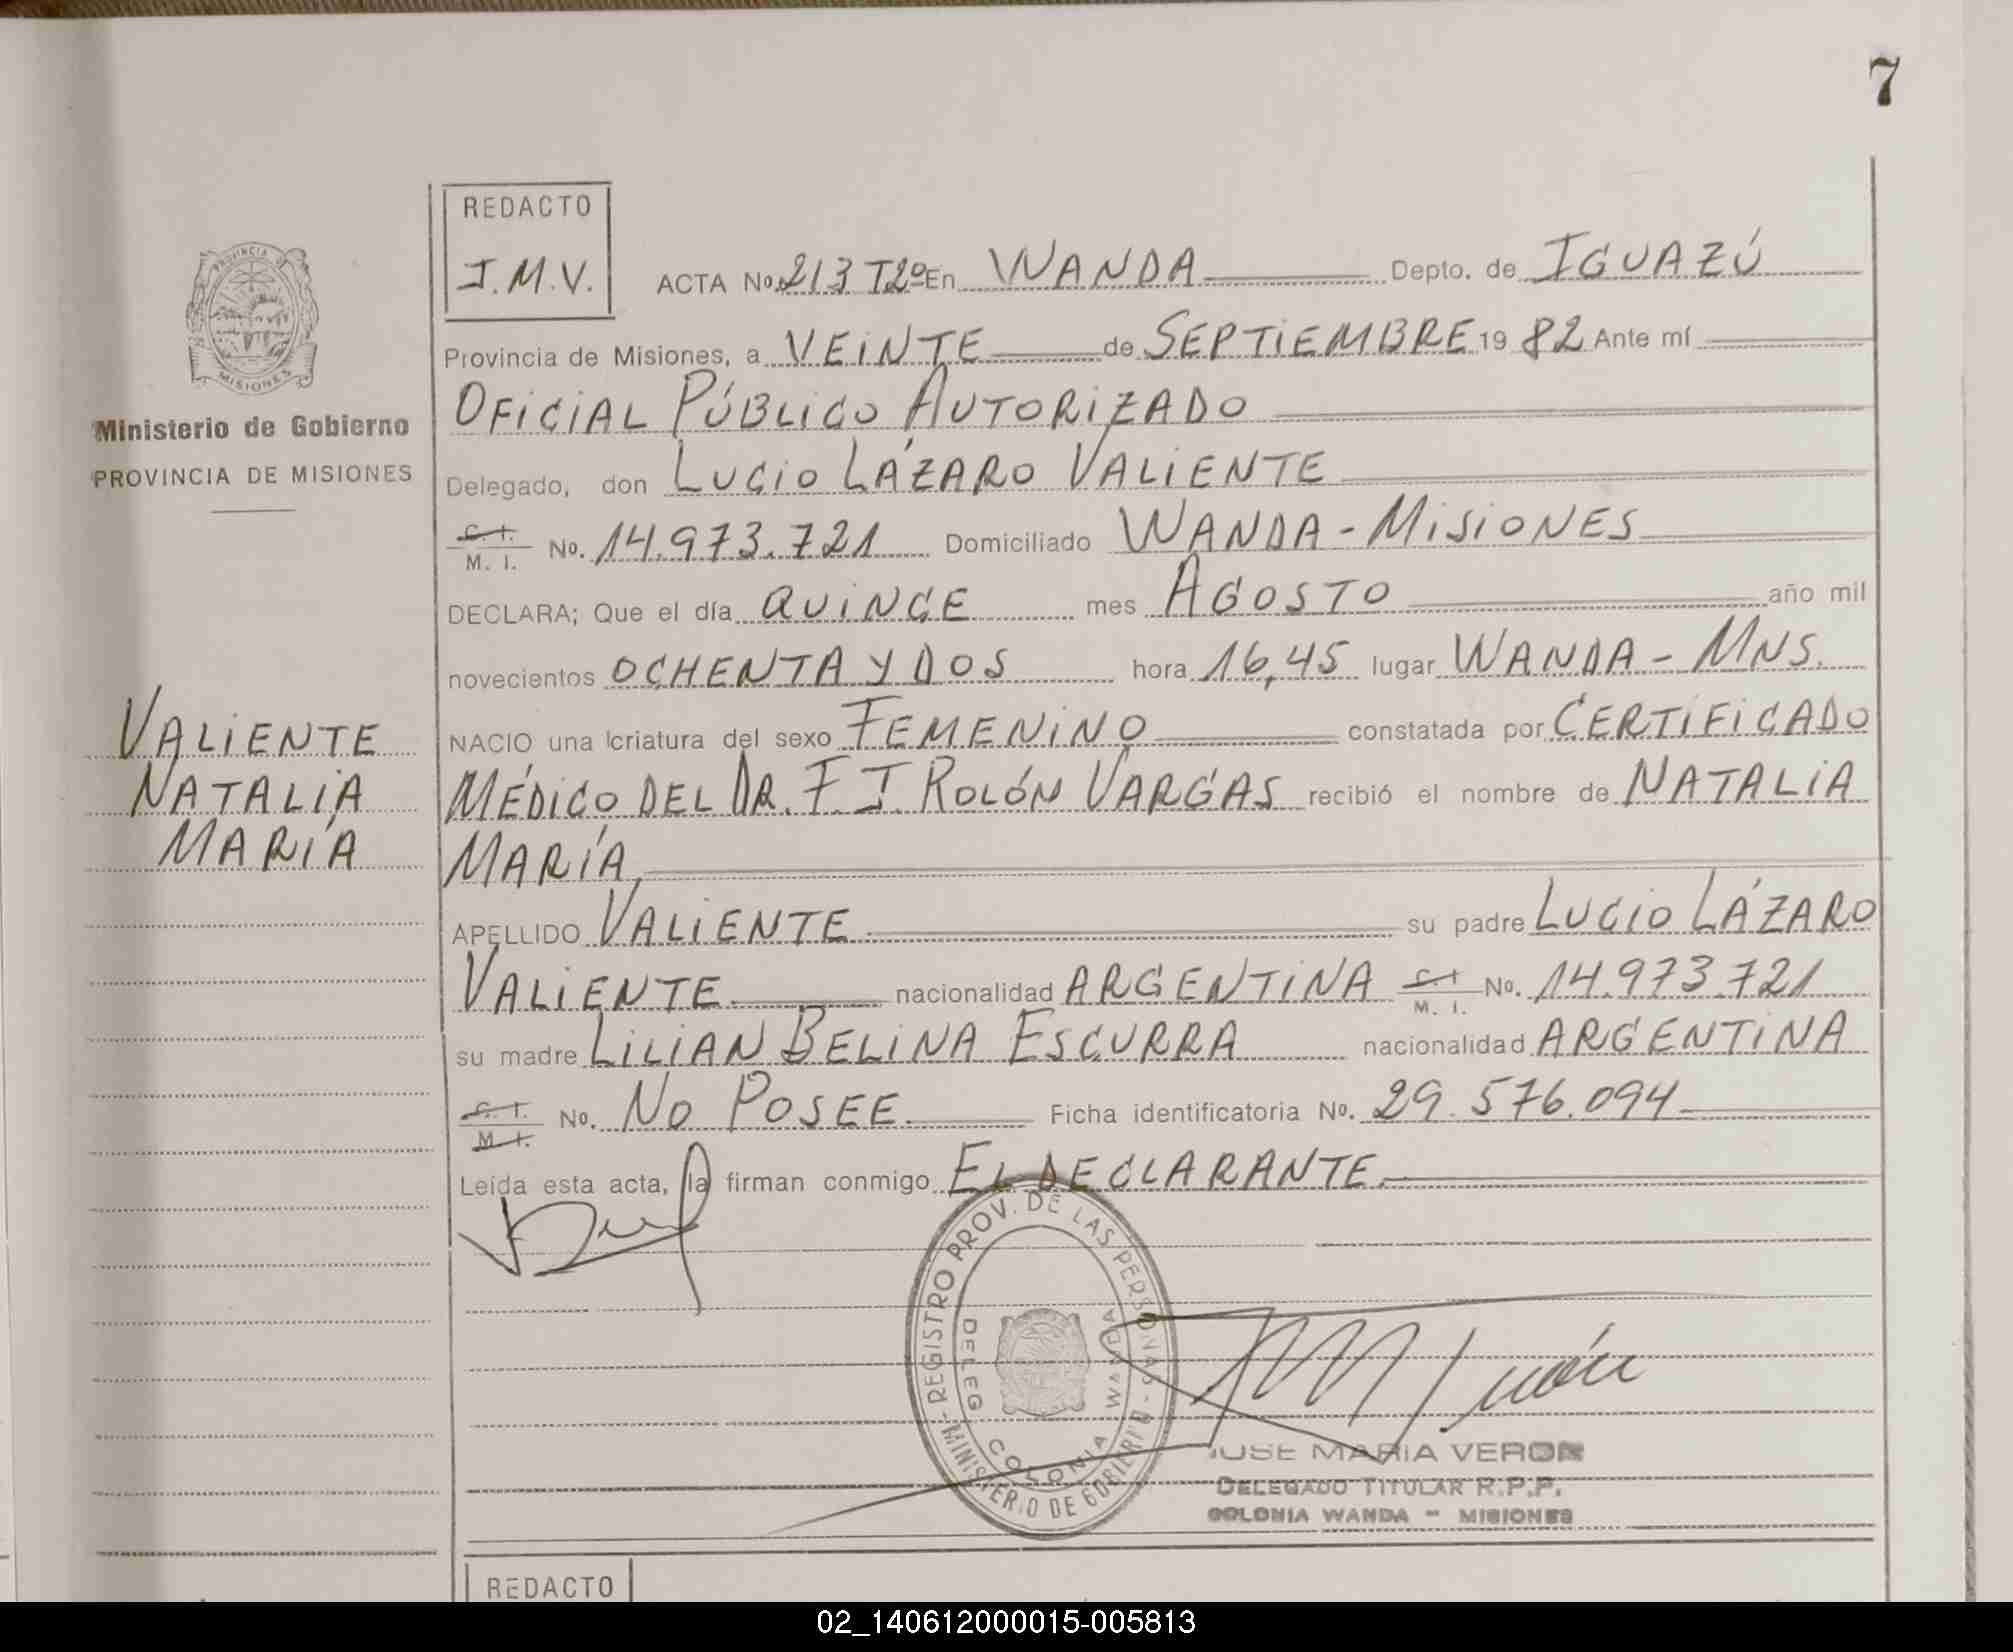 7
REDACTO
J.M.V.
ACTA No. 213 T2º En WANDA Depto. de IGUAZÚ
Provincia de Misiones, a VEINTE de SEPTIEMBRE 19 82 Ante mí
OFICIAL PÚBLICO AUTORIZADO
Delegado, don LUCIO LÁZARO VALIENTE
C. I.
M. I. No. 14.973.721 Domiciliado WANDA - MISIONES
DECLARA; Que el día QUINCE mes AGOSTO año mil
novecientos OCHENTA Y DOS hora 16,45 lugar WANDA - MNS.
NACIO una criatura del sexo FEMENINO constatada por CERTIFICADO
MÉDICO DEL DR. F. J. ROLÓN VARGAS recibió el nombre de NATALIA
MARÍA
APELLIDO VALIENTE su padre LUCIO LÁZARO
VALIENTE nacionalidad ARGENTINA C. I. M. I. No. 14.973.721
su madre LILIAN BELINA ESCURRA nacionalidad ARGENTINA
C. I.
M. I. No. NO POSEE. Ficha identificatoria No. 29.576.094
Leída esta acta, la firman conmigo EL DECLARANTE.
PROVINCIA DE
MISIONES
Ministerio de Gobierno
PROVINCIA DE MISIONES
VALIENTE
NATALIA
MARÍA
REGISTRO PROV. DE LAS PERSONAS
MINISTERIO DE GOBIERNO
DELEG. COLONIA WANDA
JOSE MARIA VERON
DELEGADO TITULAR R.P.P.
COLONIA WANDA - MISIONES
REDACTO
02_140612000015-005813